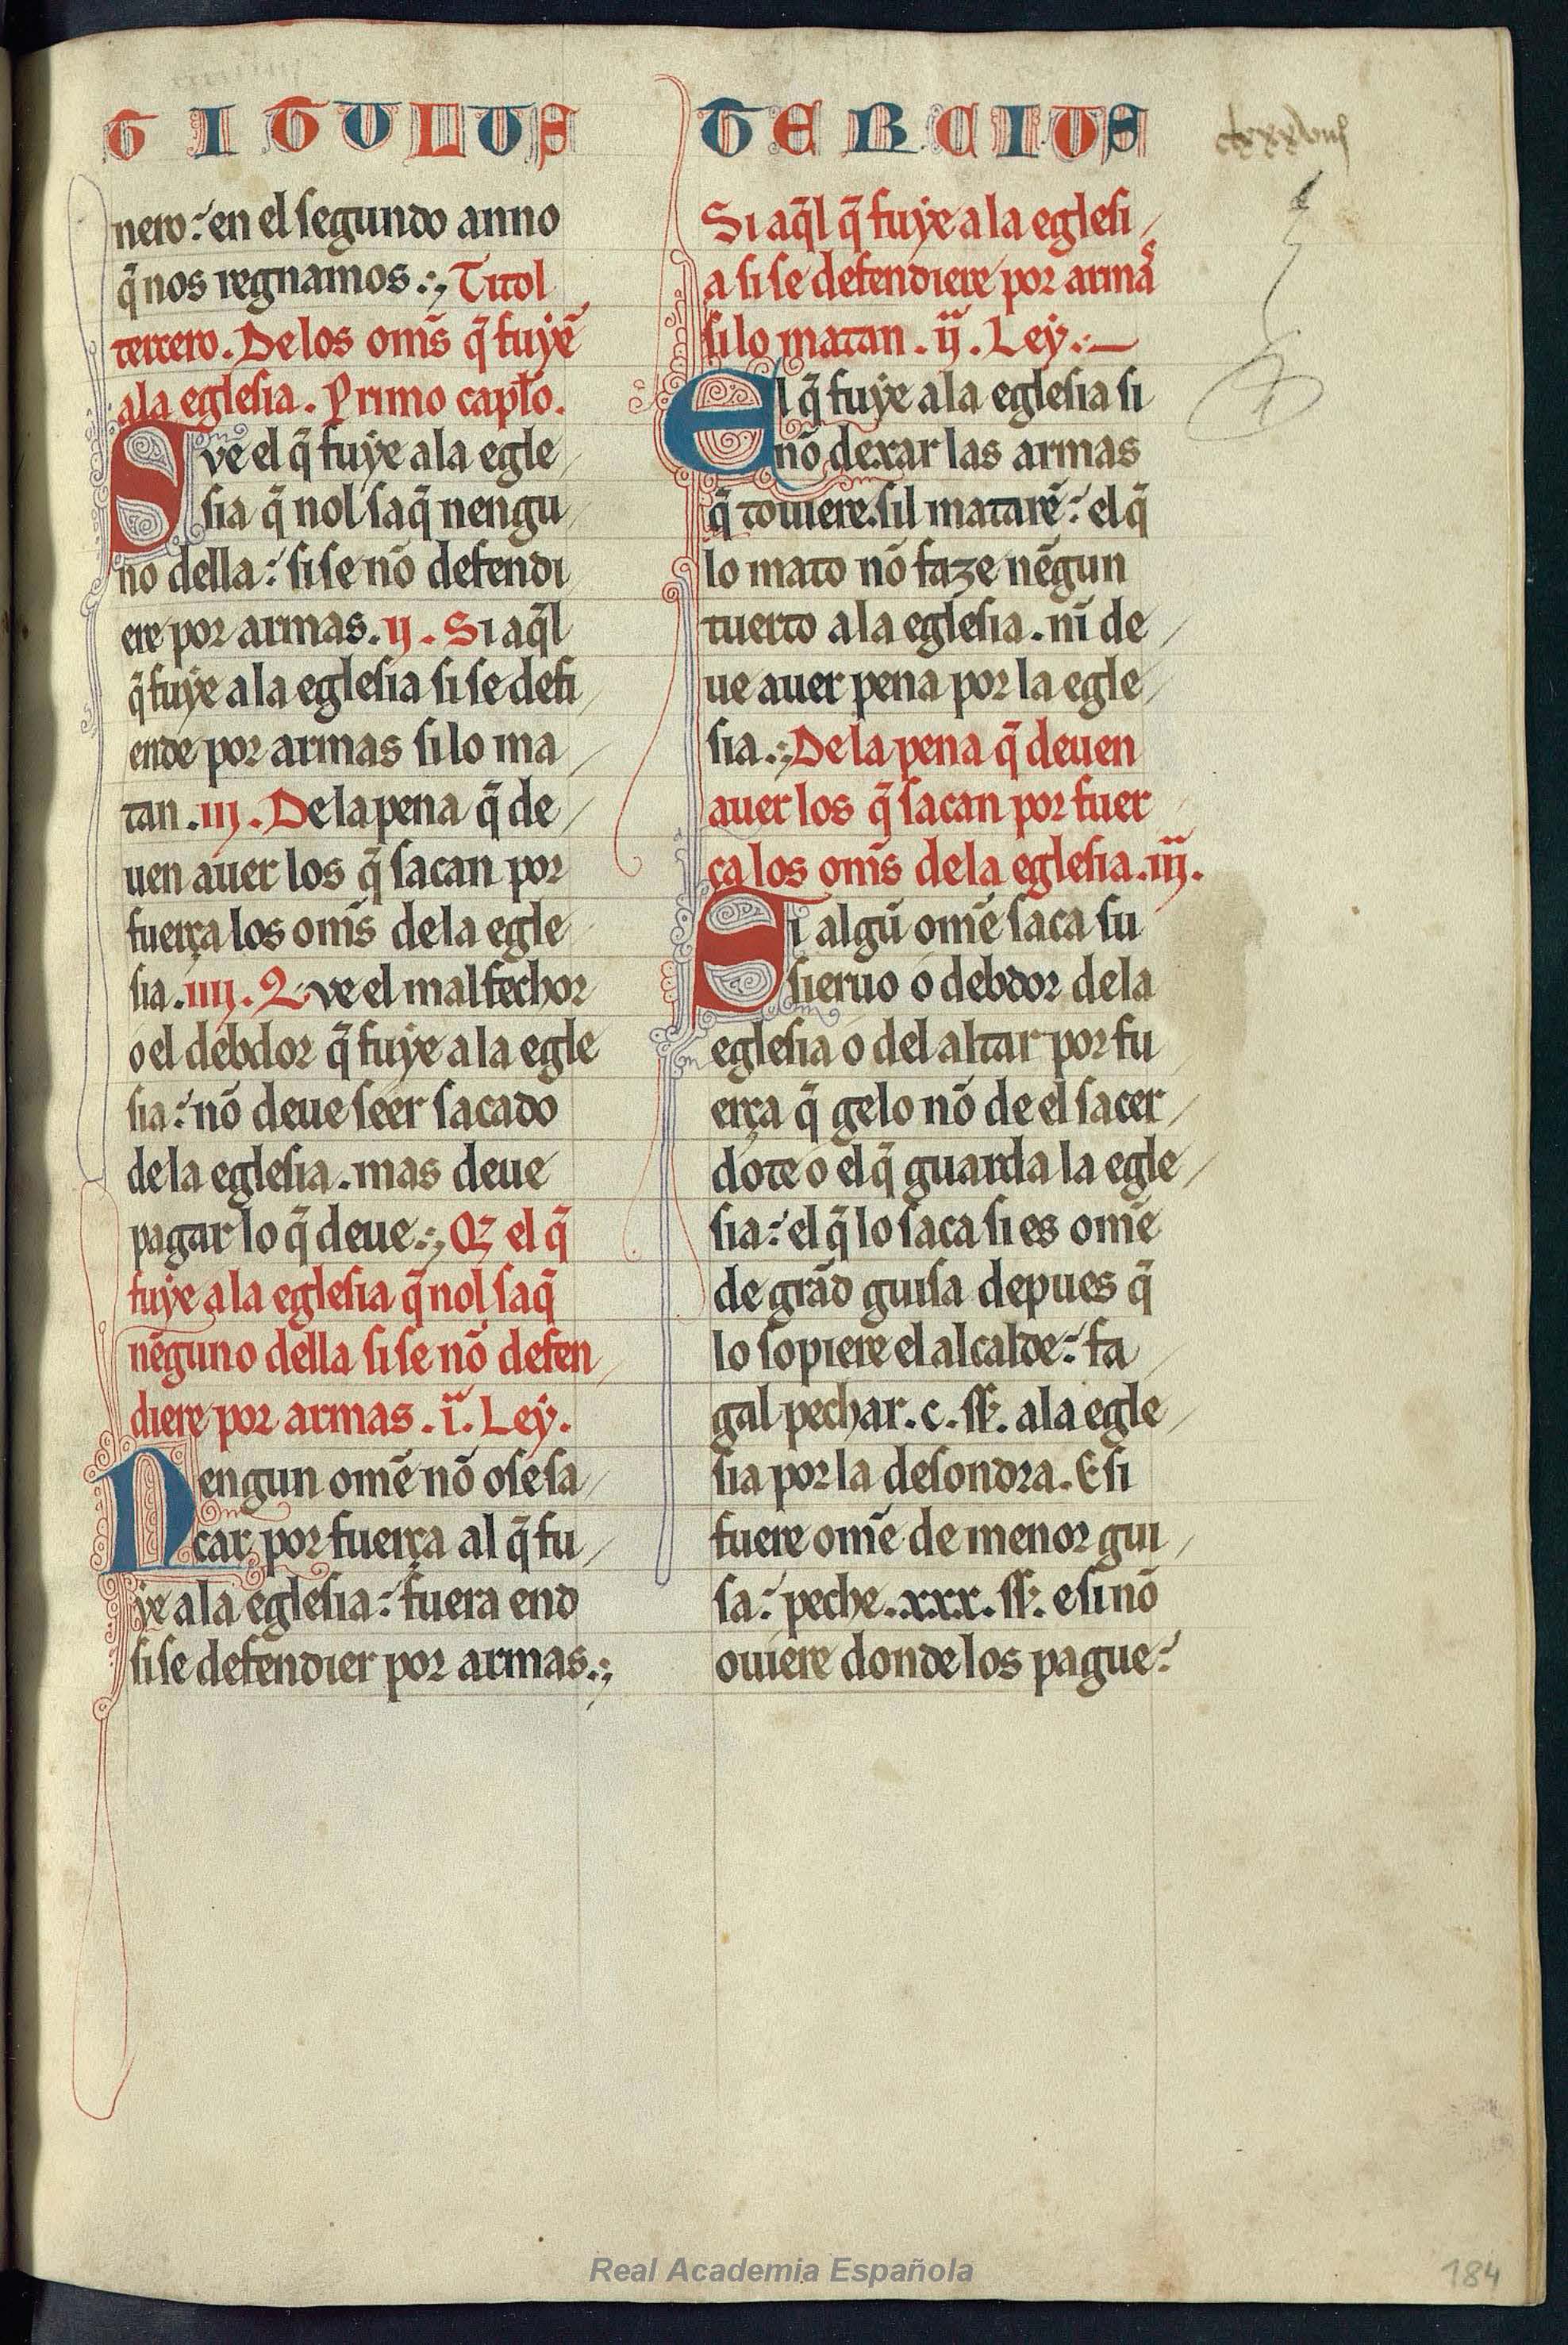 TITULUS TERCIUS
nero: en el segundo anno
q̃ nos regnamos.:, Titol
tercero. De los om̃s q̃ fuyẽ
a la eglesia. Primo capło.
Sve el q̃ fuẏe a la egle
sia q̃ nol saq̃ nengu
no della: si se nõ defendi
ere por armas. ij. Si aq̃l
q̃ fuẏe a la eglesia si se defi
ende por armas si lo ma
tan. iij. De la pena q̃ de
uen auer los q̃ sacan por
fuerça los om̃s de la egle
sia. iiij. Qve el malfechor
o el debdor q̃ fuẏe a la egle
sia: nõ deue seer sacado
de la eglesia. mas deue
pagar lo q̃ deue.:, Qꝫ el q̃
fuẏe a la eglesia q̃ nol saq̃
nẽguno della si se nõ defen
diere por armas. i. Leẏ.
Nengun omẽ nõ ose sa
car por fuerça al q̃ fu
ẏe a la eglesia: fuera end
si se defendier por armas.:,
Si aq̃l q̃ fuẏe a la eglesi
a si se defendiere por armas
si lo matan. ij. Leẏ.
El q̃ fuẏe a la eglesia si
nõ dexar las armas
q̃ touiere. sil matarẽ: el q̃
lo mato nõ faze nẽgun
tuerto a la eglesia. nĩ de
ue auer pena por la egle
sia.:, De la pena q̃ deuen
auer los q̃ sacan por fuer
ça los om̃s de la eglesia. iij.
Si algũ omẽ saca su
sieruo o debdor de la
eglesia o del altar por fu
erça q̃ gelo nõ de el sacer
dote o el q̃ guarda la egle
sia: el q̃ lo saca si es omẽ
de grãd guisa depues q̃
lo sopiere el alcalde: fa
gal pechar. c. ss̃. a la egle
sia por la desondra. E si
fuere omẽ de menor gui
sa: peche. xxx. ss̃. e si nõ
ouiere donde los pague:
Real Academia Española
184